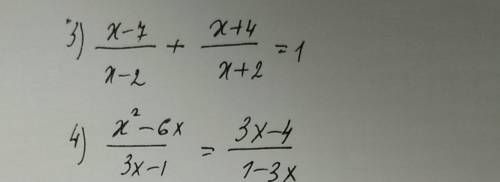 3) (x-7)/(x-2) + (x+4)/(x+2) = 1
4) (x²-6x)/(3x-1) = (3x-4)/(1-3x)